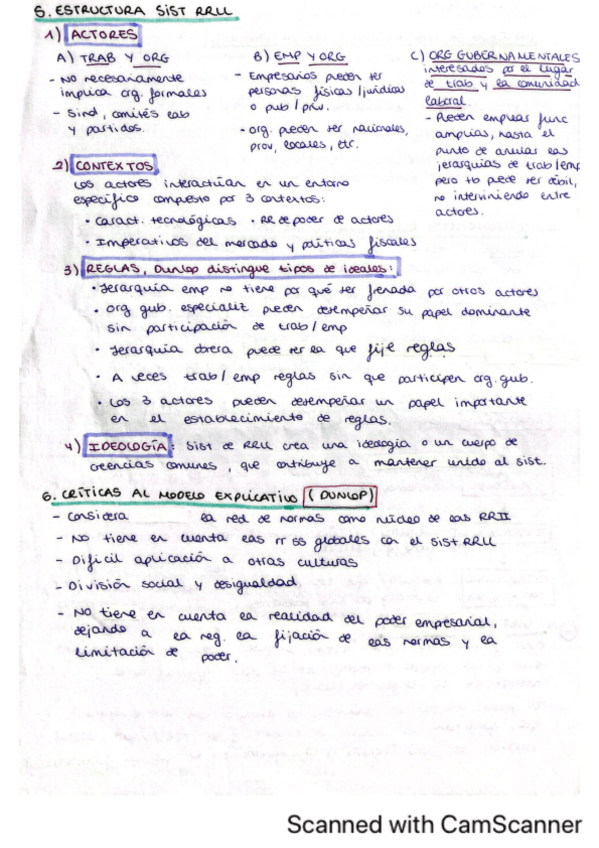 5. ESTRUCTURA SIST RRLL
1) ACTORES
A) TRAB Y ORG
- No necesariamente
implica org. formales
- Sind, comités lab
y partidos.
B) EMP Y ORG
- Empresarios pueden ser
personas físicas/jurídicas
o pub/priv.
- org. pueden ser nacionales,
prov, locales, etc.
C) ORG GUBERNAMENTALES
interesados por el lugar
de trab y la comunidad
laboral.
- Pueden emplear func
amplias, hasta el
punto de anular las
jerarquías de trab/emp
pero tb puede ser débil,
no interviniendo entre
actores.
2) CONTEXTOS
Los actores interactúan en un entorno
específico compuesto por 3 contextos:
· Caract. tecnológicas · RR de poder de actores
· Imperativos del mercado y políticas fiscales
3) REGLAS, Dunlop distingue tipos de ideales:
· Jerarquía emp no tiene por qué ser frenada por otros actores
· Org gub. especializ pueden desempeñar su papel dominante
sin participación de trab/emp
· Jerarquía obrera puede ser la que fije reglas
· A veces trab/emp reglas sin que participen org. gub.
· Los 3 actores pueden desempeñar un papel importante
en el establecimiento de reglas.
4) IDEOLOGÍA: Sist de RRLL crea una ideología o un cuerpo de
creencias comunes, que contribuye a mantener unido al sist.
6. CRÍTICAS AL MODELO EXPLICATIVO (DUNLOP)
- Considera la red de normas como núcleo de las RRII
- No tiene en cuenta las rr ss globales con el sist RRLL
- Difícil aplicación a otras culturas
- División social y desigualdad,
- No tiene en cuenta la realidad del poder empresarial,
dejando a la reg. la fijación de las normas y la
limitación de poder.
Scanned with CamScanner